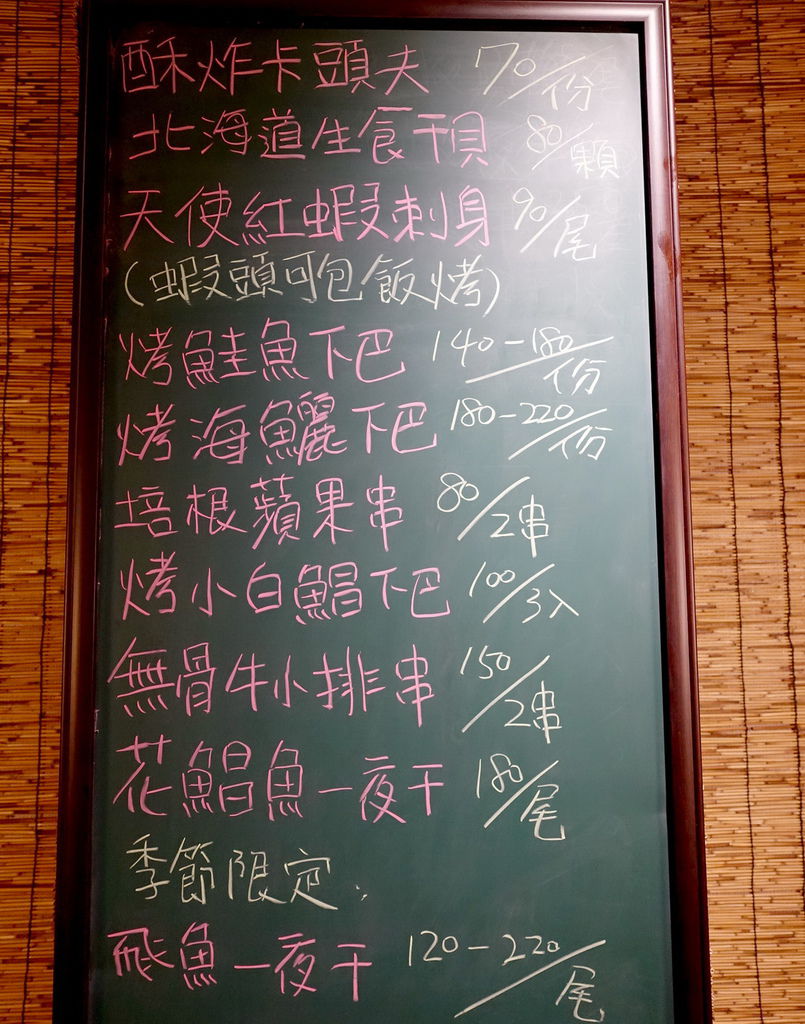 酥炸卡頭夫 70/份
北海道生食干貝 80/顆
天使紅蝦刺身 90/尾
(蝦頭可包飯烤)
烤鮭魚下巴 140-180/份
烤海鱺下巴 180-220/份
培根蘋果串 80/2串
烤小白鯧下巴 100/3入
無骨牛小排串 150/2串
花鯧魚一夜干 180/尾
季節限定:
飛魚一夜干 120-220/尾